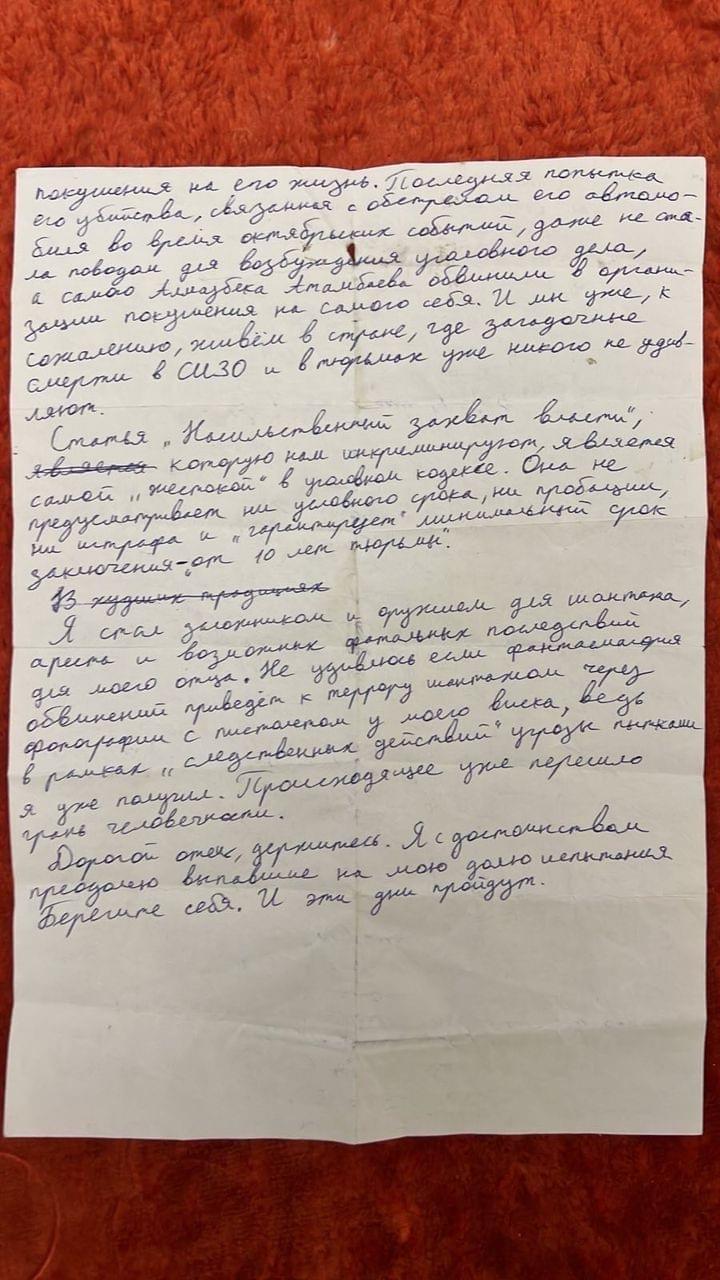 покушения на его жизнь. Последняя попытка
его убийства, связанная с обстрелом его автомо-
биля во время октябрьских событий, даже не ста-
ла поводом для возбуждения уголовного дела,
а самого Алмазбека Атамбаева обвинили в органи-
зации покушения на самого себя. И мы уже, к
сожалению, живём в стране, где загадочные
смерти в СИЗО и в тюрьмах уже никого не удив-
ляют.
Статья „Насильственный захват власти",
является которую нам инкриминируют, является
самой „жестокой" в уголовном кодексе. Она не
предусматривает ни условного срока, ни пробации,
ни штрафа и „гарантирует" минимальный срок
заключения - „от 10 лет тюрьмы".
В худших традициях
Я стал заложником и оружием для шантажа,
ареста и возможных фатальных последствий
для моего отца. Не удивлюсь если фантасмагория
обвинений приведёт к террору шантажом через
фотографии с пистолетом у моего виска, ведь
в рамках „следственных действий" угрозы пытками
я уже получил. Происходящее уже перешло
грань человечности.
Дорогой отец, держитесь. Я с достоинством
преодолею выпавшие на мою долю испытания
Берегите себя. И эти дни пройдут.